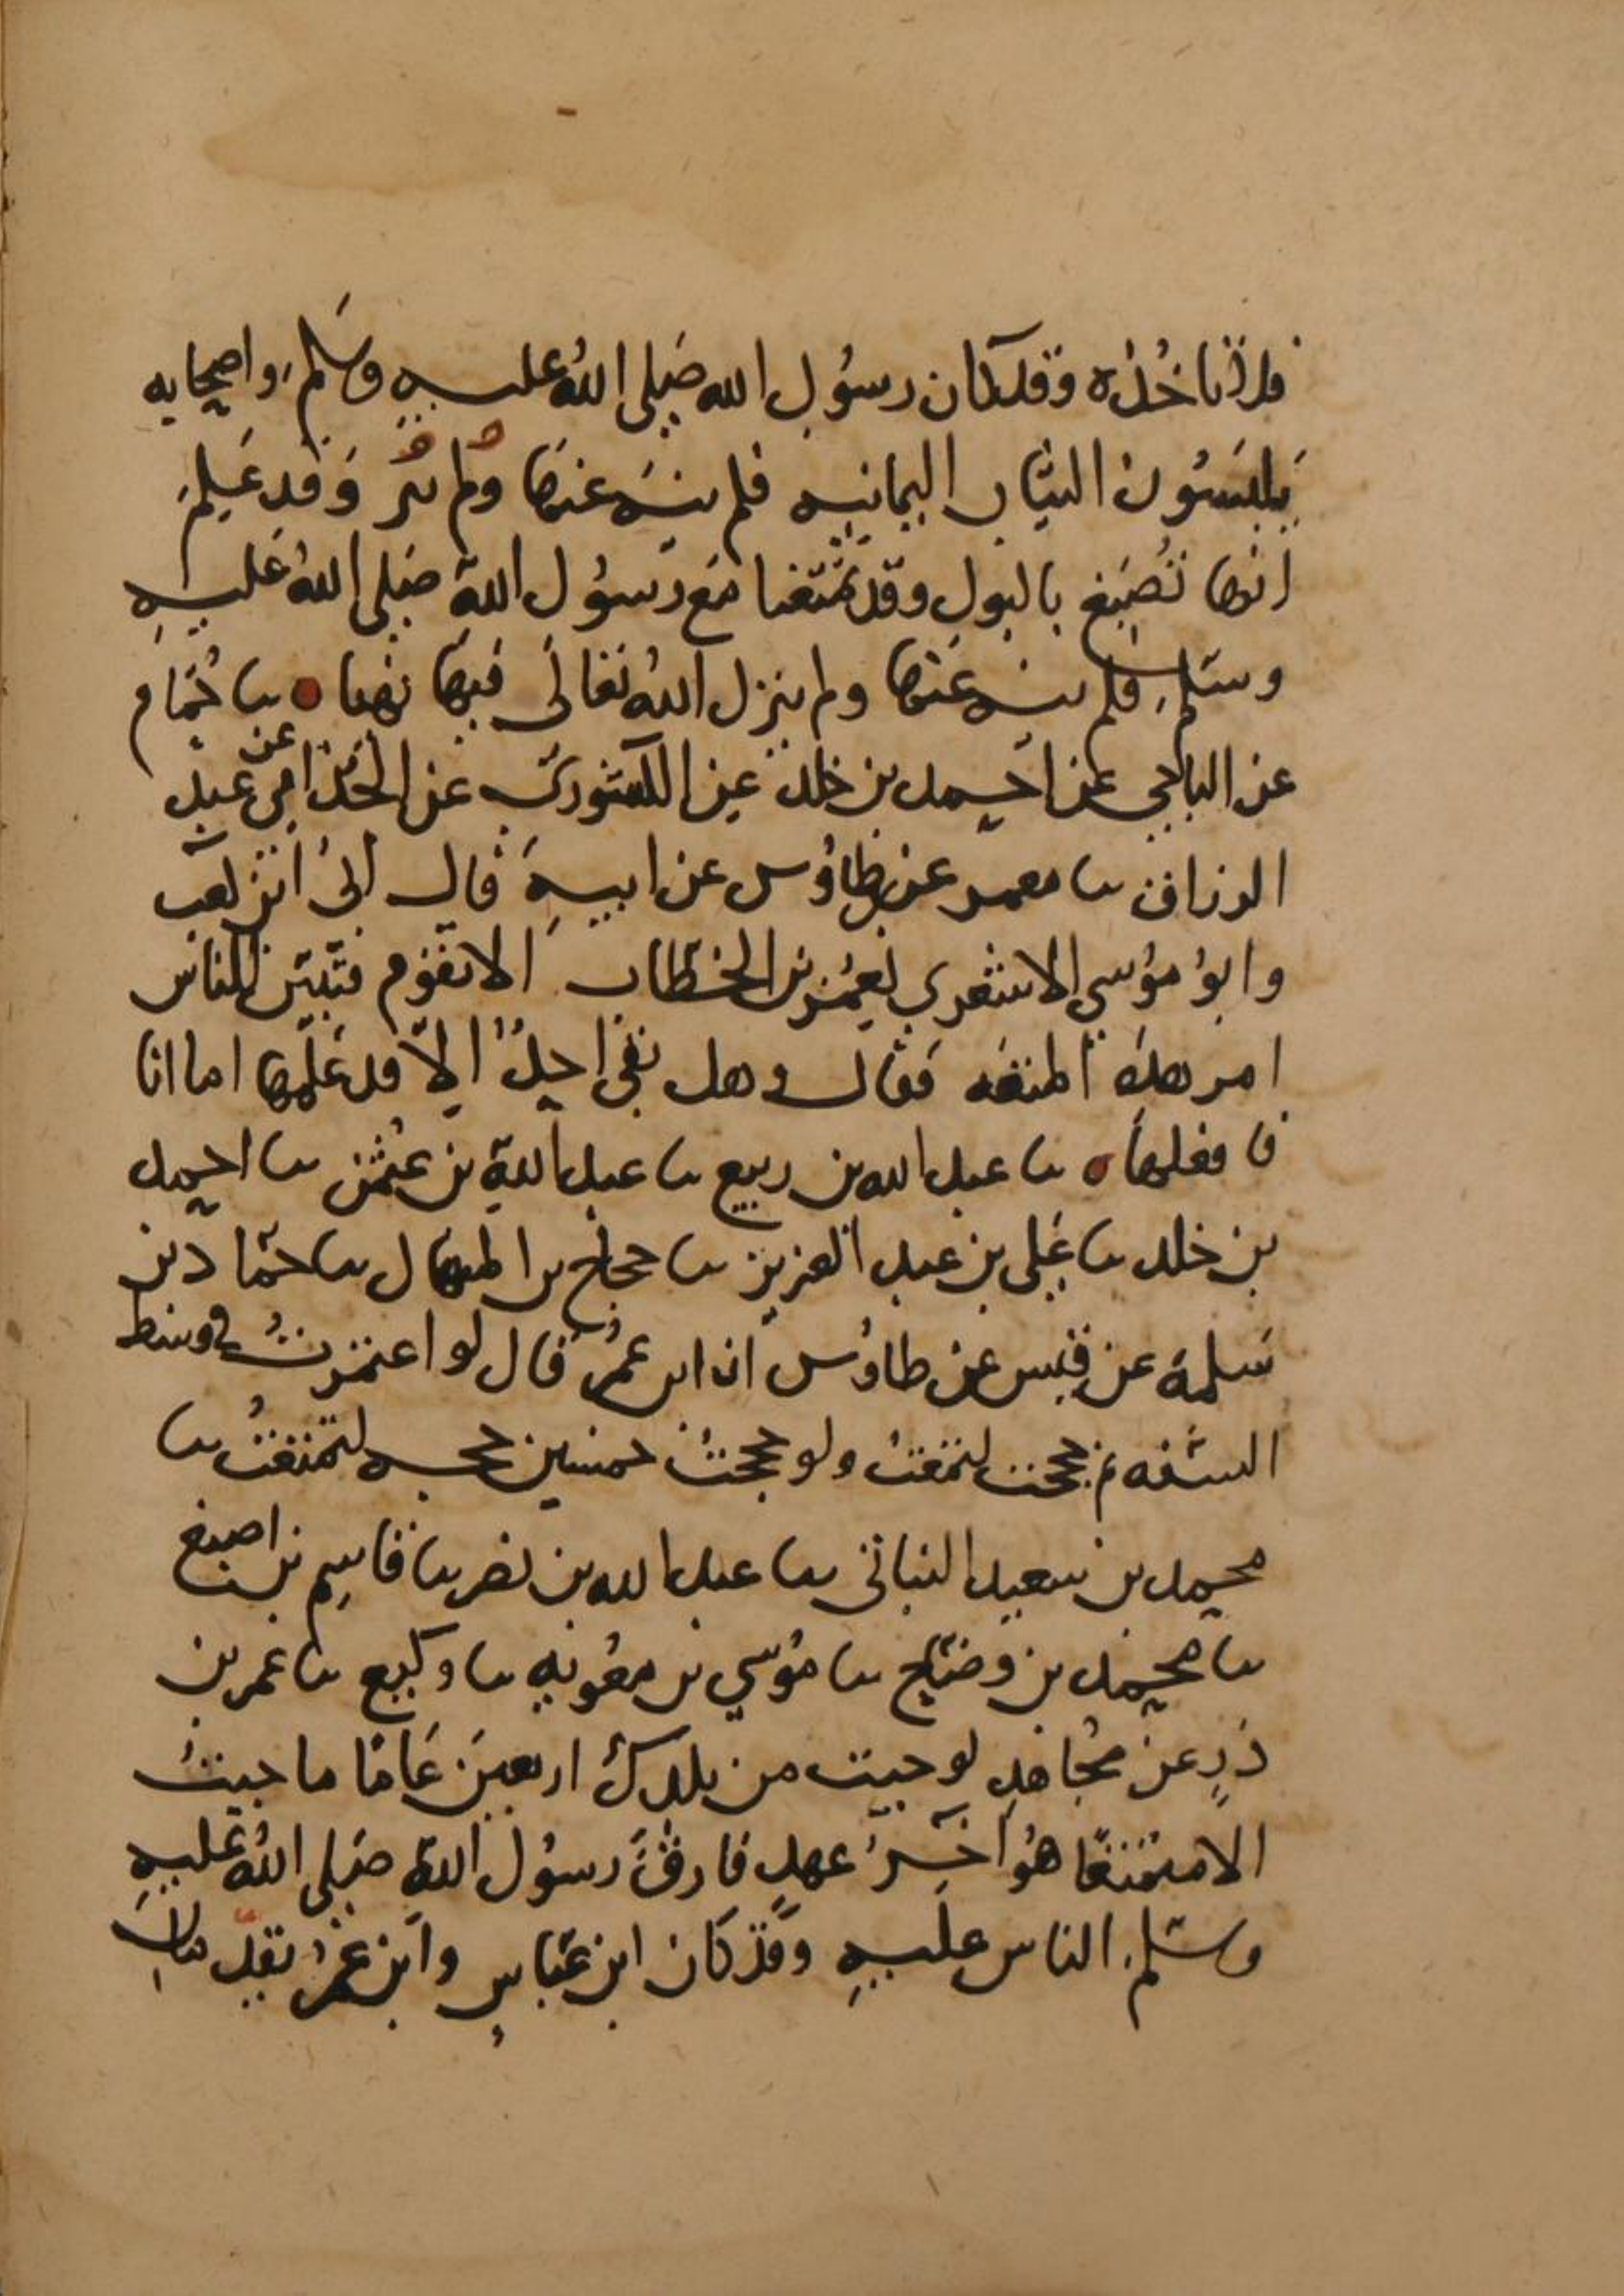 فلا تاخذه وقد كان رسول الله صَلى اللهُ عليه وسَلم واصحابه
يَلبَسُون الثياب اليمانيه فلم ينه عنها ولم وَقد عَلِمَ
انها تُصبَغ بالبول وقد تمتّعنا مَع رسُول الله صَلى اللهُ عَليهِ
وسَلم فلم ينه عَنها ولم ينزل اللهُ تعَالَى فيها نهيا ه نا حُمَام
عن الباجي عن احمد بن خلد عن الكشوري عن الحُذَامي عن عبد
الرزاق نا معمر عن طاوُس عن ابيهِ قال اُبيُّ ابن كعب
وابوُ مُوسى الاشعري لعُمر بن الخطاب الا تقوم فتبيّن للناس
امر هذه المتعَه فقال وهل بقي احدٌ اِلاّ قد عَلمها اما انا
فافعلها ه نا عبد الله بن ربيع نا عبد الله بن عُثمن نا احمد
بن خلد نا عَلى بن عبد العزيز نا حجاج بن المنهال نا حمّاد بن
سَلمة عن قيس عن طاوُس ان ابن عمرُ قال لو اعتمرتُ في وسط
السنه ثم حججت لتمتعت ولو حججتُ خمسين حجه لتمتعتُ نا
محمد بن سعيد النباتي نا عبد الله بن نصر نا قاسِم بن اصبغ
نا محمد بن وضّاح نا مُوسي بن معُويه نا وكيع نا عمر بن
ذَرٍ عن مُجاهد لو جيت من بلدك اربعينَ عَامًا ما جيتُ
الا متمتعًا هُو آخِرُ عهدٍ فارقَ رسُول الله صَلى اللهُ عَليهِ
وسَلم الناس عليهِ وَقَد كان ابن عَباسٍ وابن عمَر بقديد